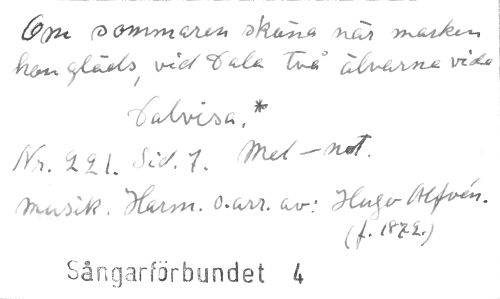 Om sommaren sköna när marken
hon gläds, vid Dala två älvarna vida
Dalvisa.*
Nr. 221. Sid. 7. Mel-not.
musik. Harm. o. arr. av: Hugo Alfvén.
(f. 1872.)
Sångarförbundet 4